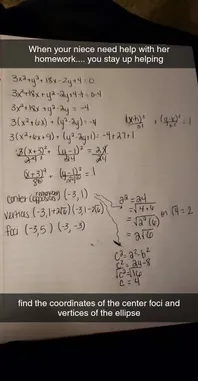 When your niece need help with her
homework.... you stay up helping
3x²+y²+18x-2y+4=0
3x²+18x+y²-2y+4-4=0-4
3x²+18x+y²-2y=-4
3(x²+6x)+(y²-2y)=-4
3(x²+6x+9)+(y²-2y+1)=-4+27+1
(y-1)²/24
(x+3)²/8 + (y-1)²/24 = 1
center (-3,1)
vertices (-3,1+2√6)(-3,1-2√6)
foci (-3,5) (-3,-3)
a²=24
=√4·6
=√2²(6) or √4=2
=2√6
c²=a²-b²
c²=24-8
√c²=√16
c=4
find the coordinates of the center foci and
vertices of the ellipse